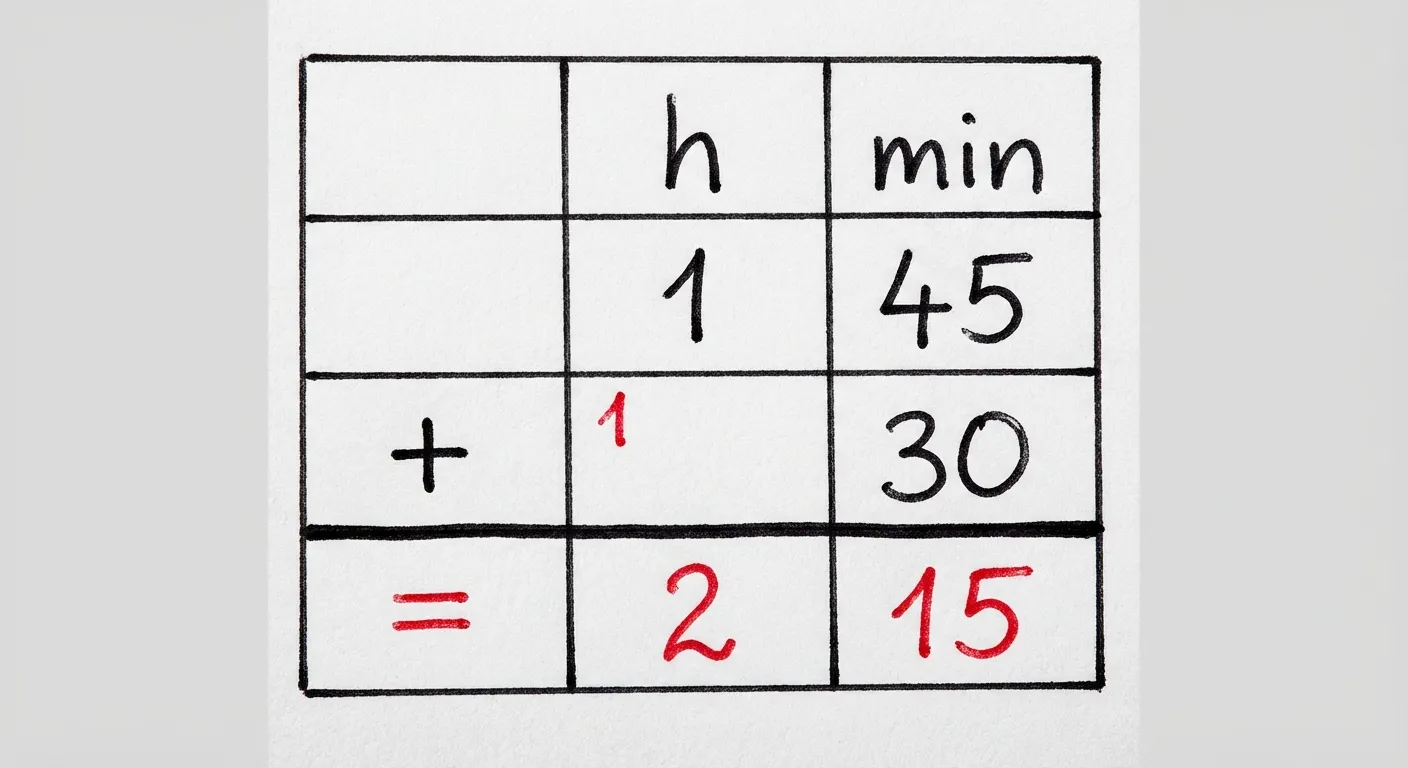 h min
1 45
+ 1 30
= 2 15